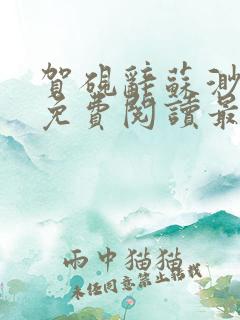 賀硯辭蘇渺
免費閱讀最
雨中猫猫
未经同意禁止转载